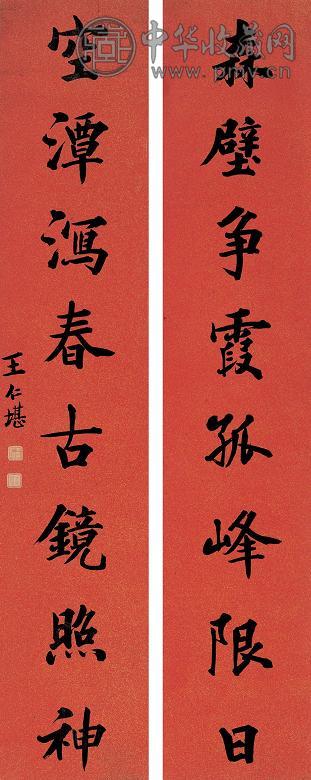 森壁争霞孤峰限日
空潭瀉春古鏡照神
王仁堪
中华收藏网